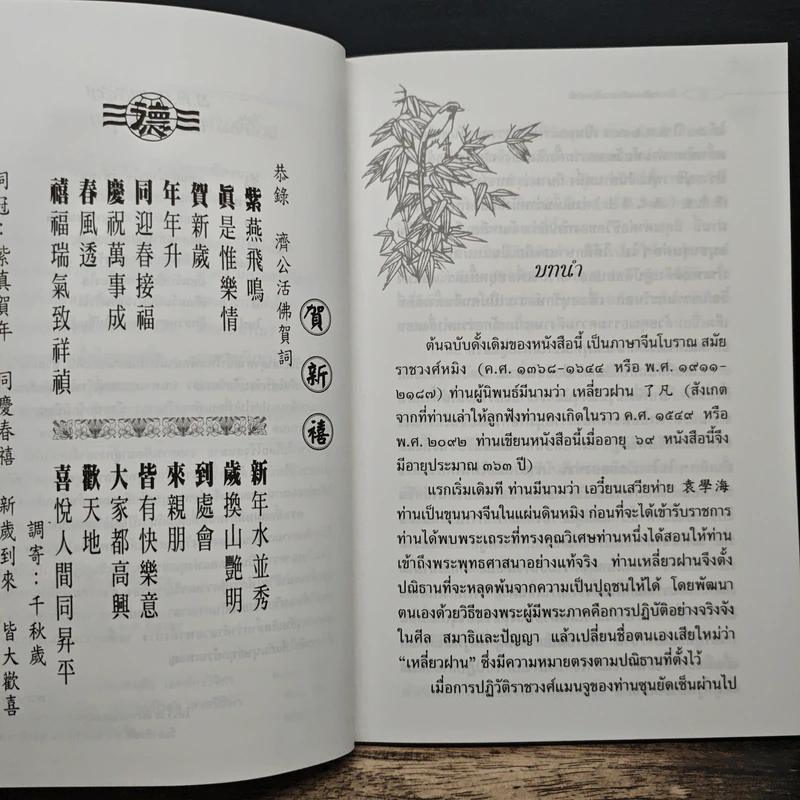 德
賀新禧
恭錄 濟公活佛賀詞
紫燕飛鳴
眞是惟樂情
賀新歲
年年升
同迎春接福
慶祝萬事成
春風透
禧福瑞氣致祥禎
新年水並秀
歲換山艷明
到處會
來親朋
皆有快樂意
大家都高興
歡天地
喜悅人間同昇平
調寄：千秋歲
同冠：紫真賀年 同慶春禧 新歲到來 皆大歡喜
บทนำ
ต้นฉบับดั้งเดิมของหนังสือนี้ เป็นภาษาจีนโบราณ สมัย
ราชวงศ์หมิง (ค.ศ. ๑๓๖๘-๑๖๔๔ หรือ พ.ศ. ๑๙๑๑-
๒๑๘๗) ท่านผู้นิพนธ์มีนามว่า เหลี่ยวฝาน 了凡 (สังเกต
จากที่ท่านเล่าให้ลูกฟังท่านคงเกิดในราว ค.ศ. ๑๕๔๙ หรือ
พ.ศ. ๒๐๙๒ ท่านเขียนหนังสือนี้เมื่ออายุ ๖๙ หนังสือนี้จึง
มีอายุประมาณ ๓๖๓ ปี)
แรกเริ่มเดิมที ท่านมีนามว่า เอวี๋ยนเสวียห่าย 袁學海
ท่านเป็นขุนนางจีนในแผ่นดินหมิง ก่อนที่จะได้เข้ารับราชการ
ท่านได้พบพระเถระที่ทรงคุณวิเศษท่านหนึ่งได้สอนให้ท่าน
เข้าถึงพระพุทธศาสนาอย่างแท้จริง ท่านเหลี่ยวฝานจึงตั้ง
ปณิธานที่จะหลุดพ้นจากความเป็นปุถุชนให้ได้ โดยพัฒนา
ตนเองด้วยวิธีของพระผู้มีพระภาคคือการปฏิบัติอย่างจริงจัง
ในศีล สมาธิและปัญญา แล้วเปลี่ยนชื่อตนเองเสียใหม่ว่า
“เหลี่ยวฝาน” ซึ่งมีความหมายตรงตามปณิธานที่ตั้งไว้
เมื่อการปฏิวัติราชวงศ์แมนจูของท่านซุนยัดเซ็นผ่านไป